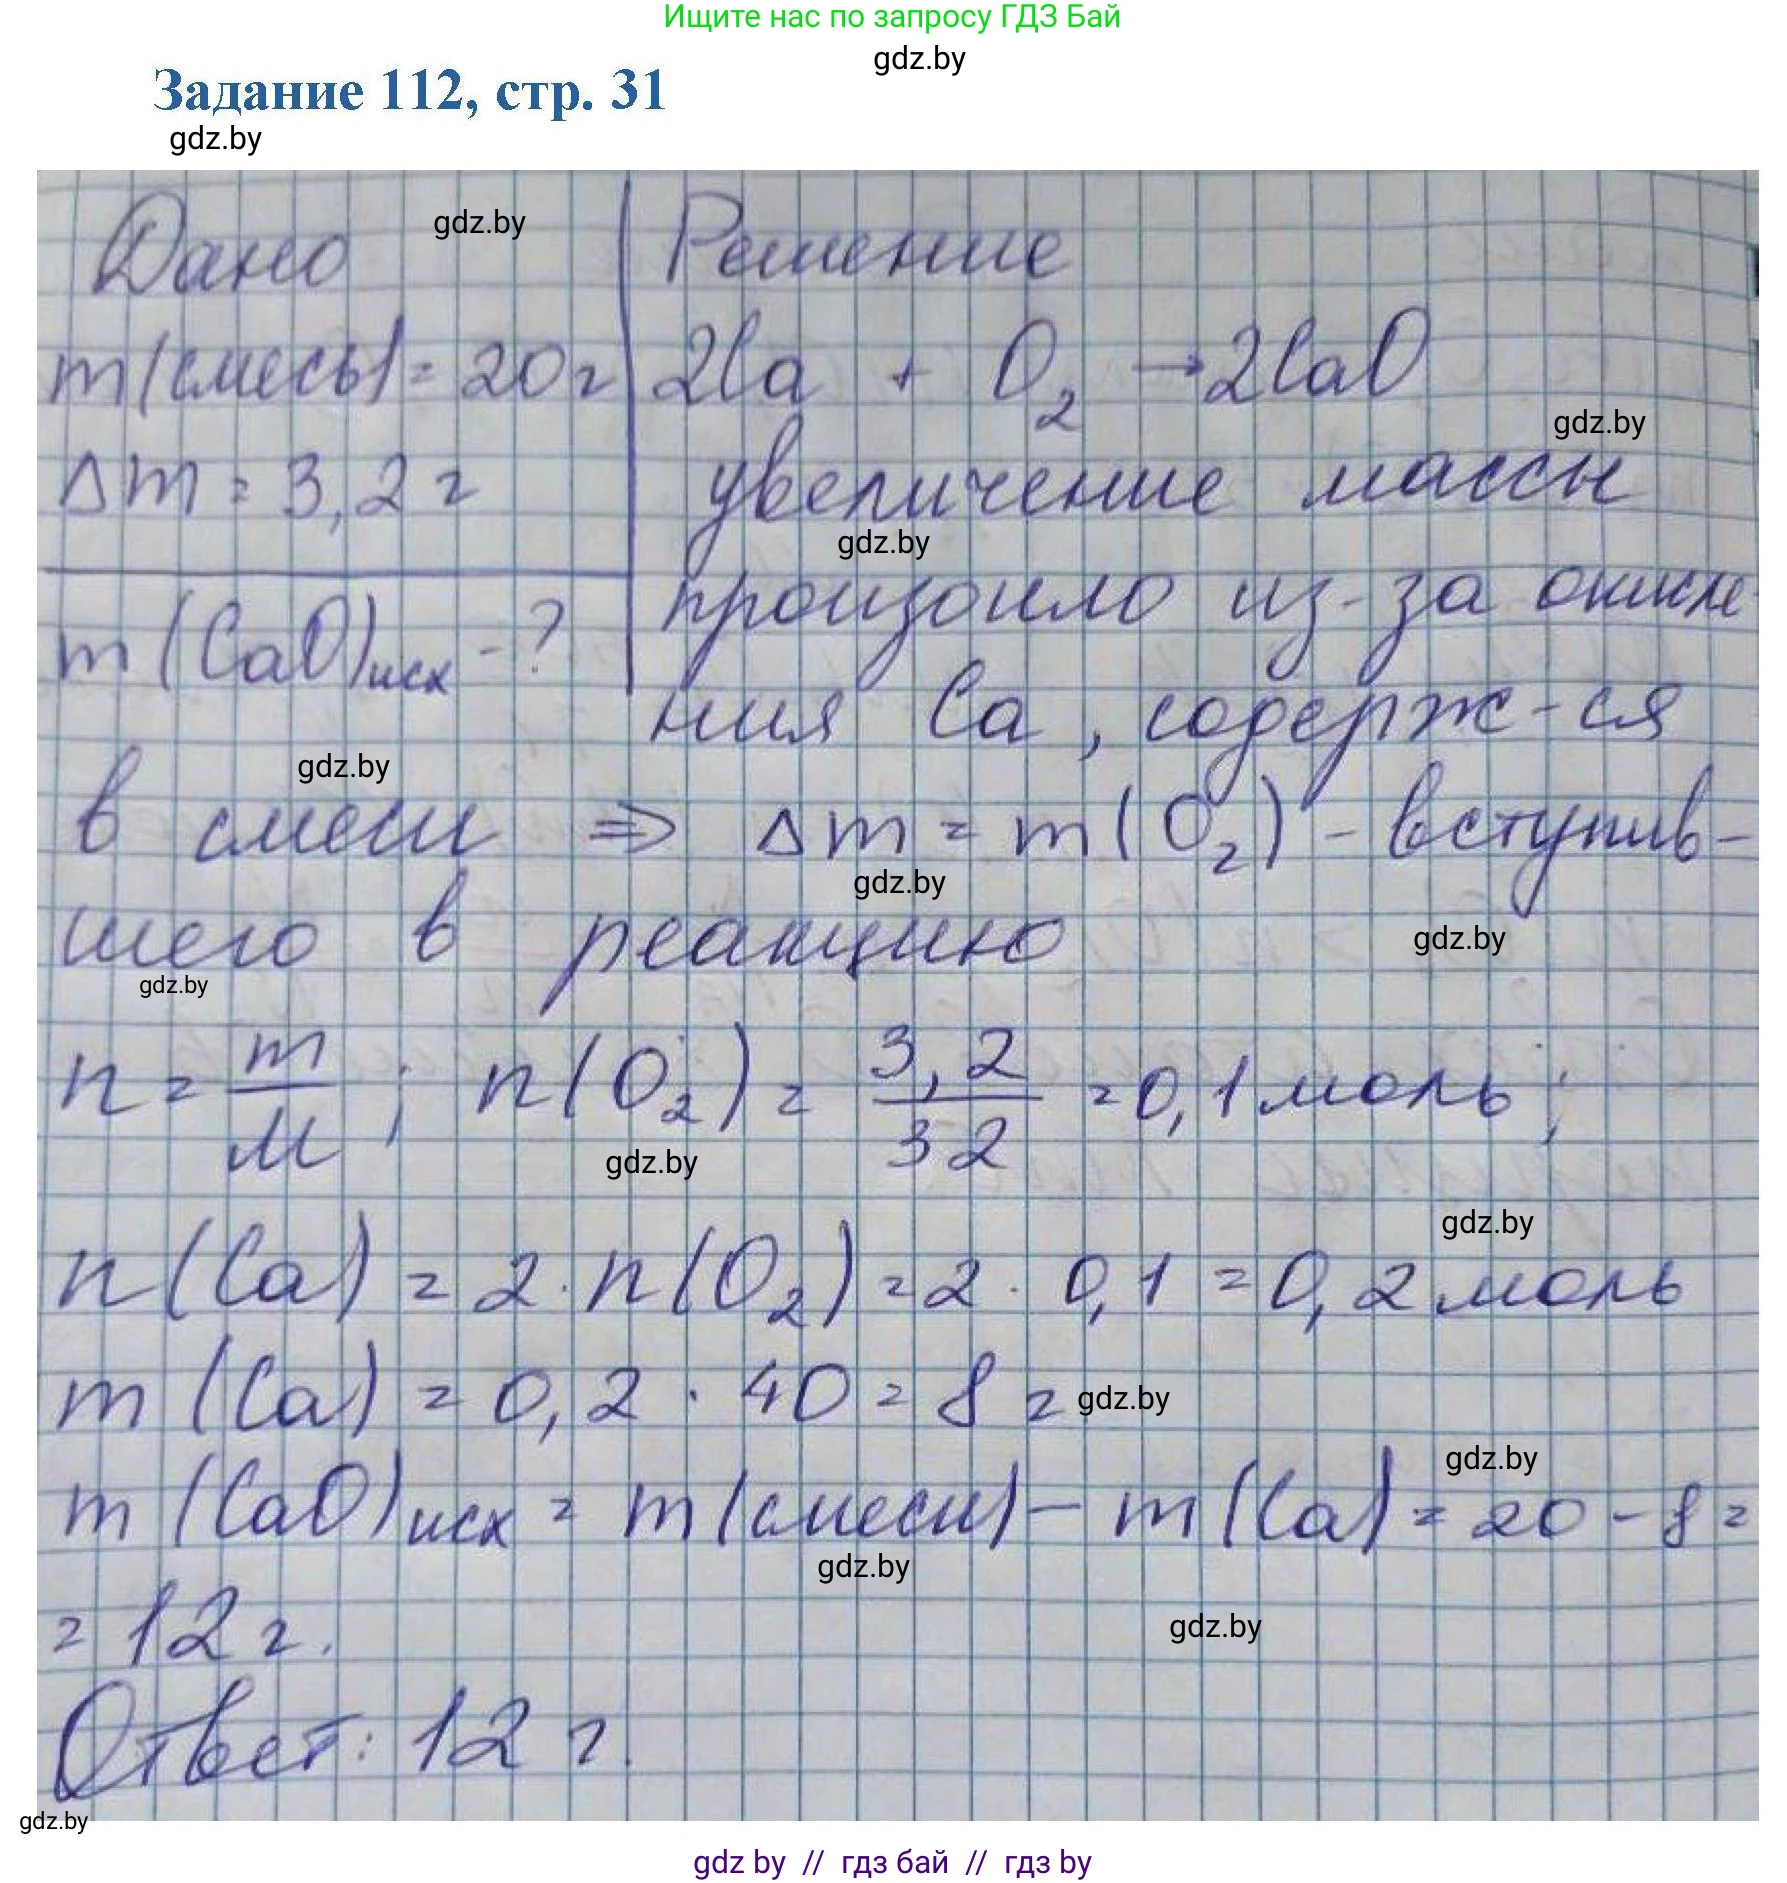 Ищите нас по запросу ГДЗ Бай
gdz.by
Задание 112, стр. 31
gdz.by
Дано gdz.by Решение
m(смесь) = 20 г 2Ca + O₂ → 2CaO
gdz.by
Δm = 3,2 г увеличение массы
gdz.by
m(CaO)исх - ? произошло из-за окисле-
ния Ca, содерж-ся
gdz.by
в смеси ⇒ Δm = m(O₂) - вступив-
gdz.by
шего в реакцию gdz.by
gdz.by
n = m/M ; n(O₂) = 3,2/32 = 0,1 моль ;
gdz.by
gdz.by
n(Ca) = 2 · n(O₂) = 2 · 0,1 = 0,2 моль
m(Ca) = 0,2 · 40 = 8 г gdz.by
gdz.by
m(CaO)исх = m(смеси) - m(Ca) = 20 - 8 =
gdz.by
= 12 г. gdz.by
Ответ: 12 г.
gdz.by
gdz by // гдз бай // гдз by